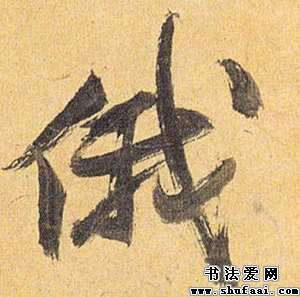 俄
书法爱网
www.shufaai.com